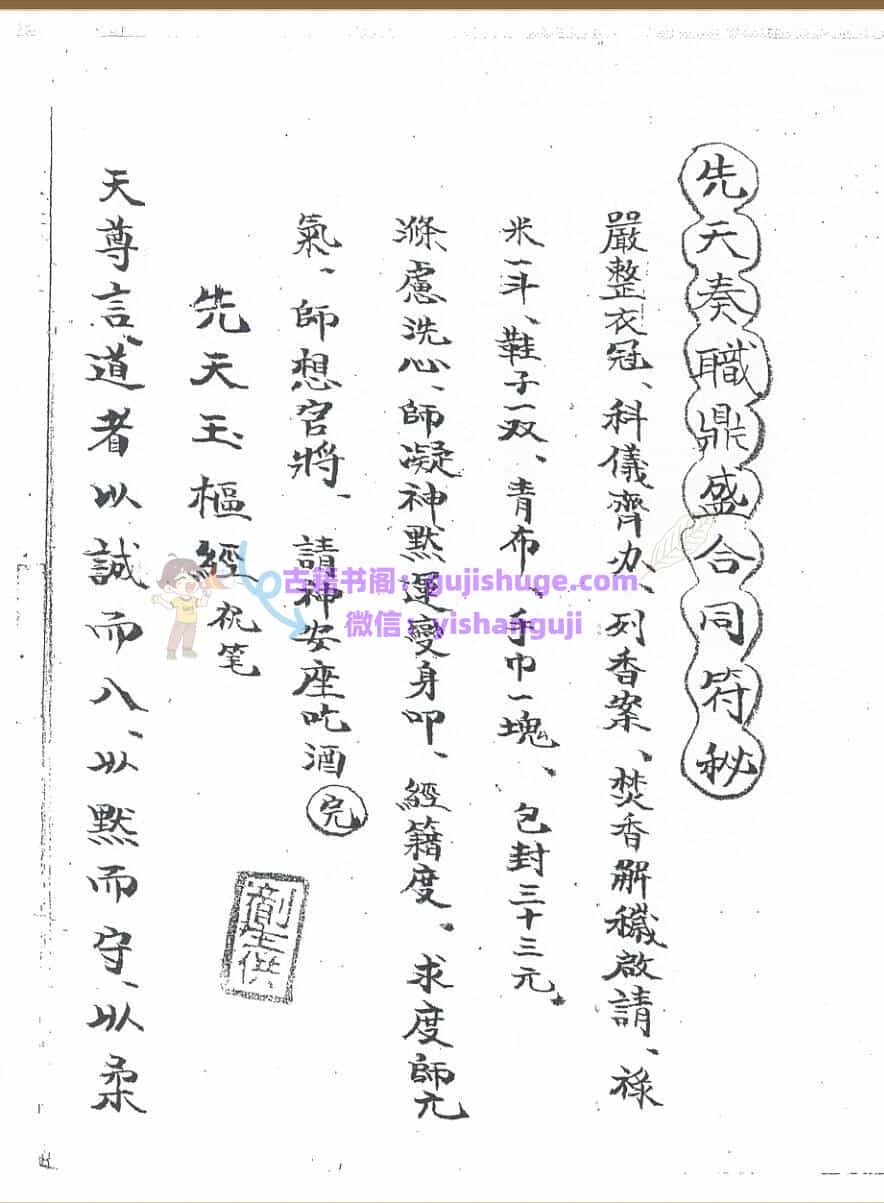 先天奏職鼎盛合同符秘
嚴整衣冠、科儀齊办、列香案、焚香解穢啟請、祿
米一斗、鞋子一双、青布、手巾一塊、包封三十三元。
滌慮洗心、師凝神默運變身叩、經籍度、求度師元
氣、師想官將、請神安座吃酒 完
先天玉樞經 祝笔
天尊言、道者以誠而入、以默而守、以柔
古籍书阁：gujishuge.com
微信：yishanguji